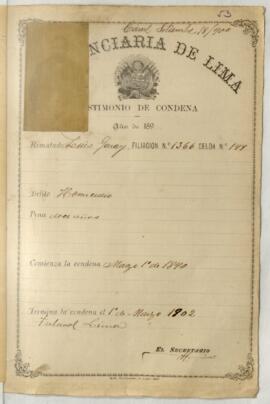 53
NCIARIA DE LIMA
STIMONIO DE CONDENA
Año de 189
Rematado Luis Garay, FILIACION N.º 1366 CELDA N.º 144
Delito Homicidio
Pena doce años
Comienza la condena Mayo 1º de 1890
Termina la condena el 1º de Mayo 1902
EL SECRETARIO